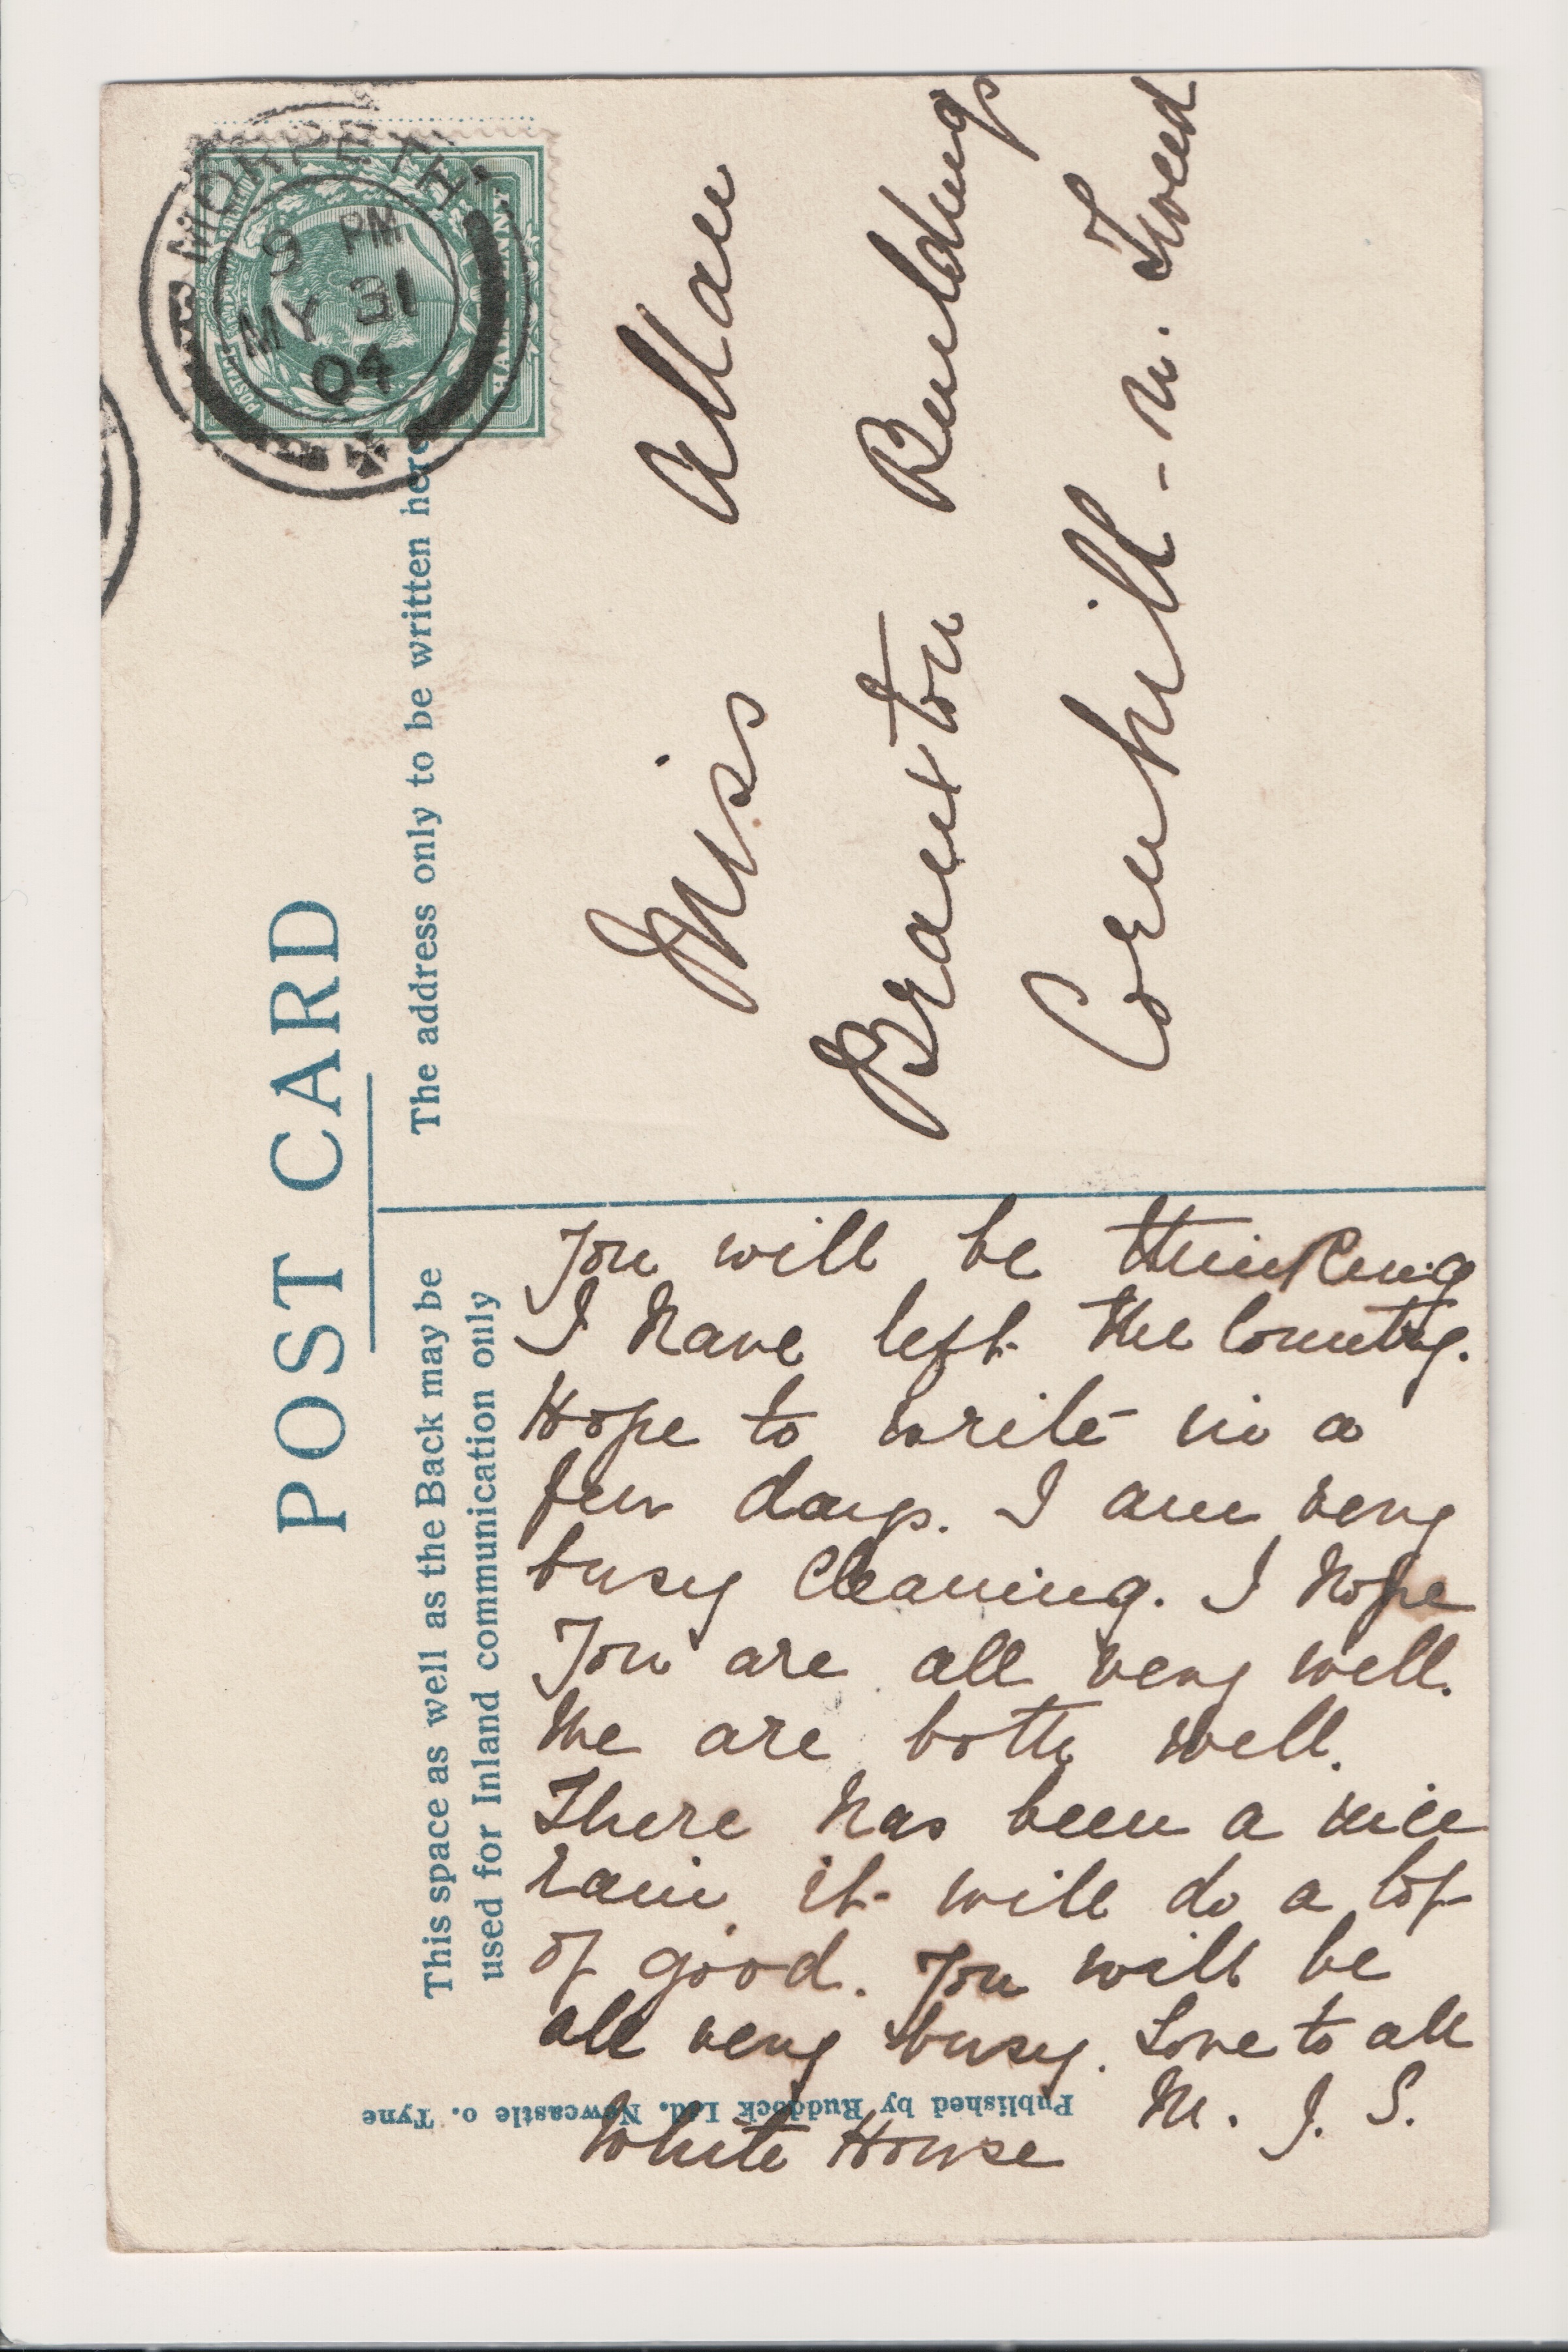 POST CARD
This space as well as the Back may be
used for Inland communication only
The address only to be written here
MORPETH
9 PM
MY 31
04
HALFPENNY
Miss Allan
Branxton Buildings
Cornhill-n. Tweed
You will be thinking
I have left the Country.
Hope to write in a
few days. I am very
busy Cleaning. I hope
You are all very well.
We are both well.
There has been a nice
rain it will do a lot
of good. You will be
all very busy. Love to all
M. J. S.
White House
Published by Ruddock Ltd. Newcastle o. Tyne